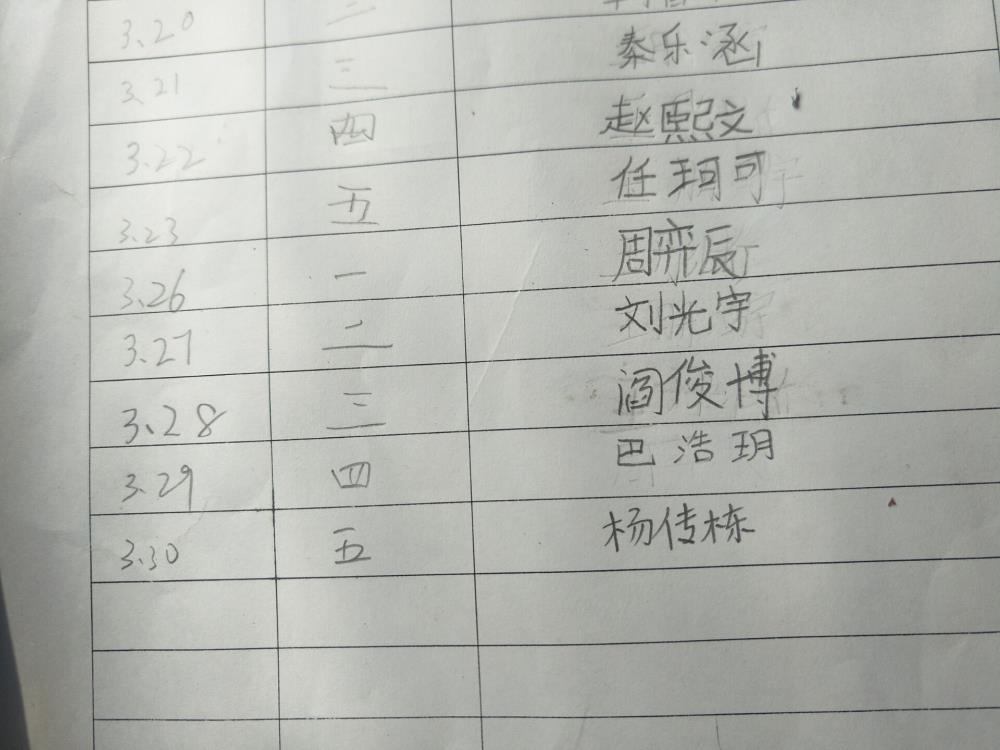 3.20 二
3.21 三 秦乐涵
3.22 四 赵熙文
3.23 五 任珂可
3.26 一 周弈辰
3.27 二 刘光宇
3.28 三 阎俊博
3.29 四 巴浩玥
3.30 五 杨传栋